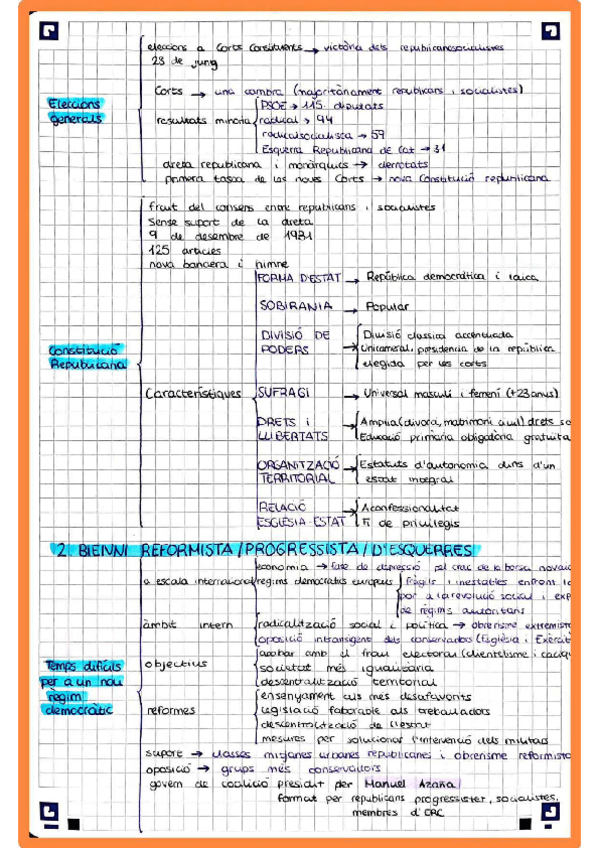 eleccions a Corts Constituents → victòria dels republicanosocialistes
28 de juny
Corts → una cambra (majoritàriament republicans i socialistes)
Eleccions generals
resultats minoria
PSOE → 115 diputats
radical → 94
radicalsocialista → 59
Esquerra Republicana de Cat → 31
dreta republicana i monàrquics → derrotats
primera tasca de les noves Corts → nova Constitució republicana
fruit del consens entre republicans i socialistes
Sense suport de la dreta
9 de desembre de 1931
125 articles
nova bandera i himne
Constitució Republicana
Característiques
FORMA D'ESTAT → República democràtica i laica
SOBIRANIA → Popular
DIVISIÓ DE PODERS →
Divisió clàssica accentuada
Unicameral, presidencia de la república
elegida per les corts
SUFRAGI → Universal masculí i femení (+23 anys)
DRETS i LLIBERTATS →
Amplia (divorci, matrimoni civil) drets
Educació primària obligatòria gratuïta
ORGANITZACIÓ TERRITORIAL →
Estatuts d'autonomia dins d'un
estat integral
RELACIÓ ESGLÉSIA-ESTAT →
Aconfessionalitat
Fi de privilegis
2. BIENNI REFORMISTA / PROGRESSISTA / D'ESQUERRES
Temps difícils per a un nou règim democràtic
a escala internacional
economia → fase de depressió pel crac de la borsa
regims democràtics europeus
fràgils i inestables enfront
por a la revolució social i
de règims autoritaris
àmbit intern
radicalització social i política → obrerisme
oposició intransigent dels conservadors (Església i
objectius
acabar amb el frau electoral (clientelisme i
societat més igualitària
descentralització territorial
reformes
ensenyament als més desafavorits
legislació faborable als treballadors
descentralització de l'estat
mesures per solucionar l'intervenció dels militars
suport → classes mitjanes urbanes republicanes i obrerisme
oposició → grups més conservadors
govern de coalició presidit per Manuel Azaña
format per republicans progressistes, socialistes,
membres d'ERC